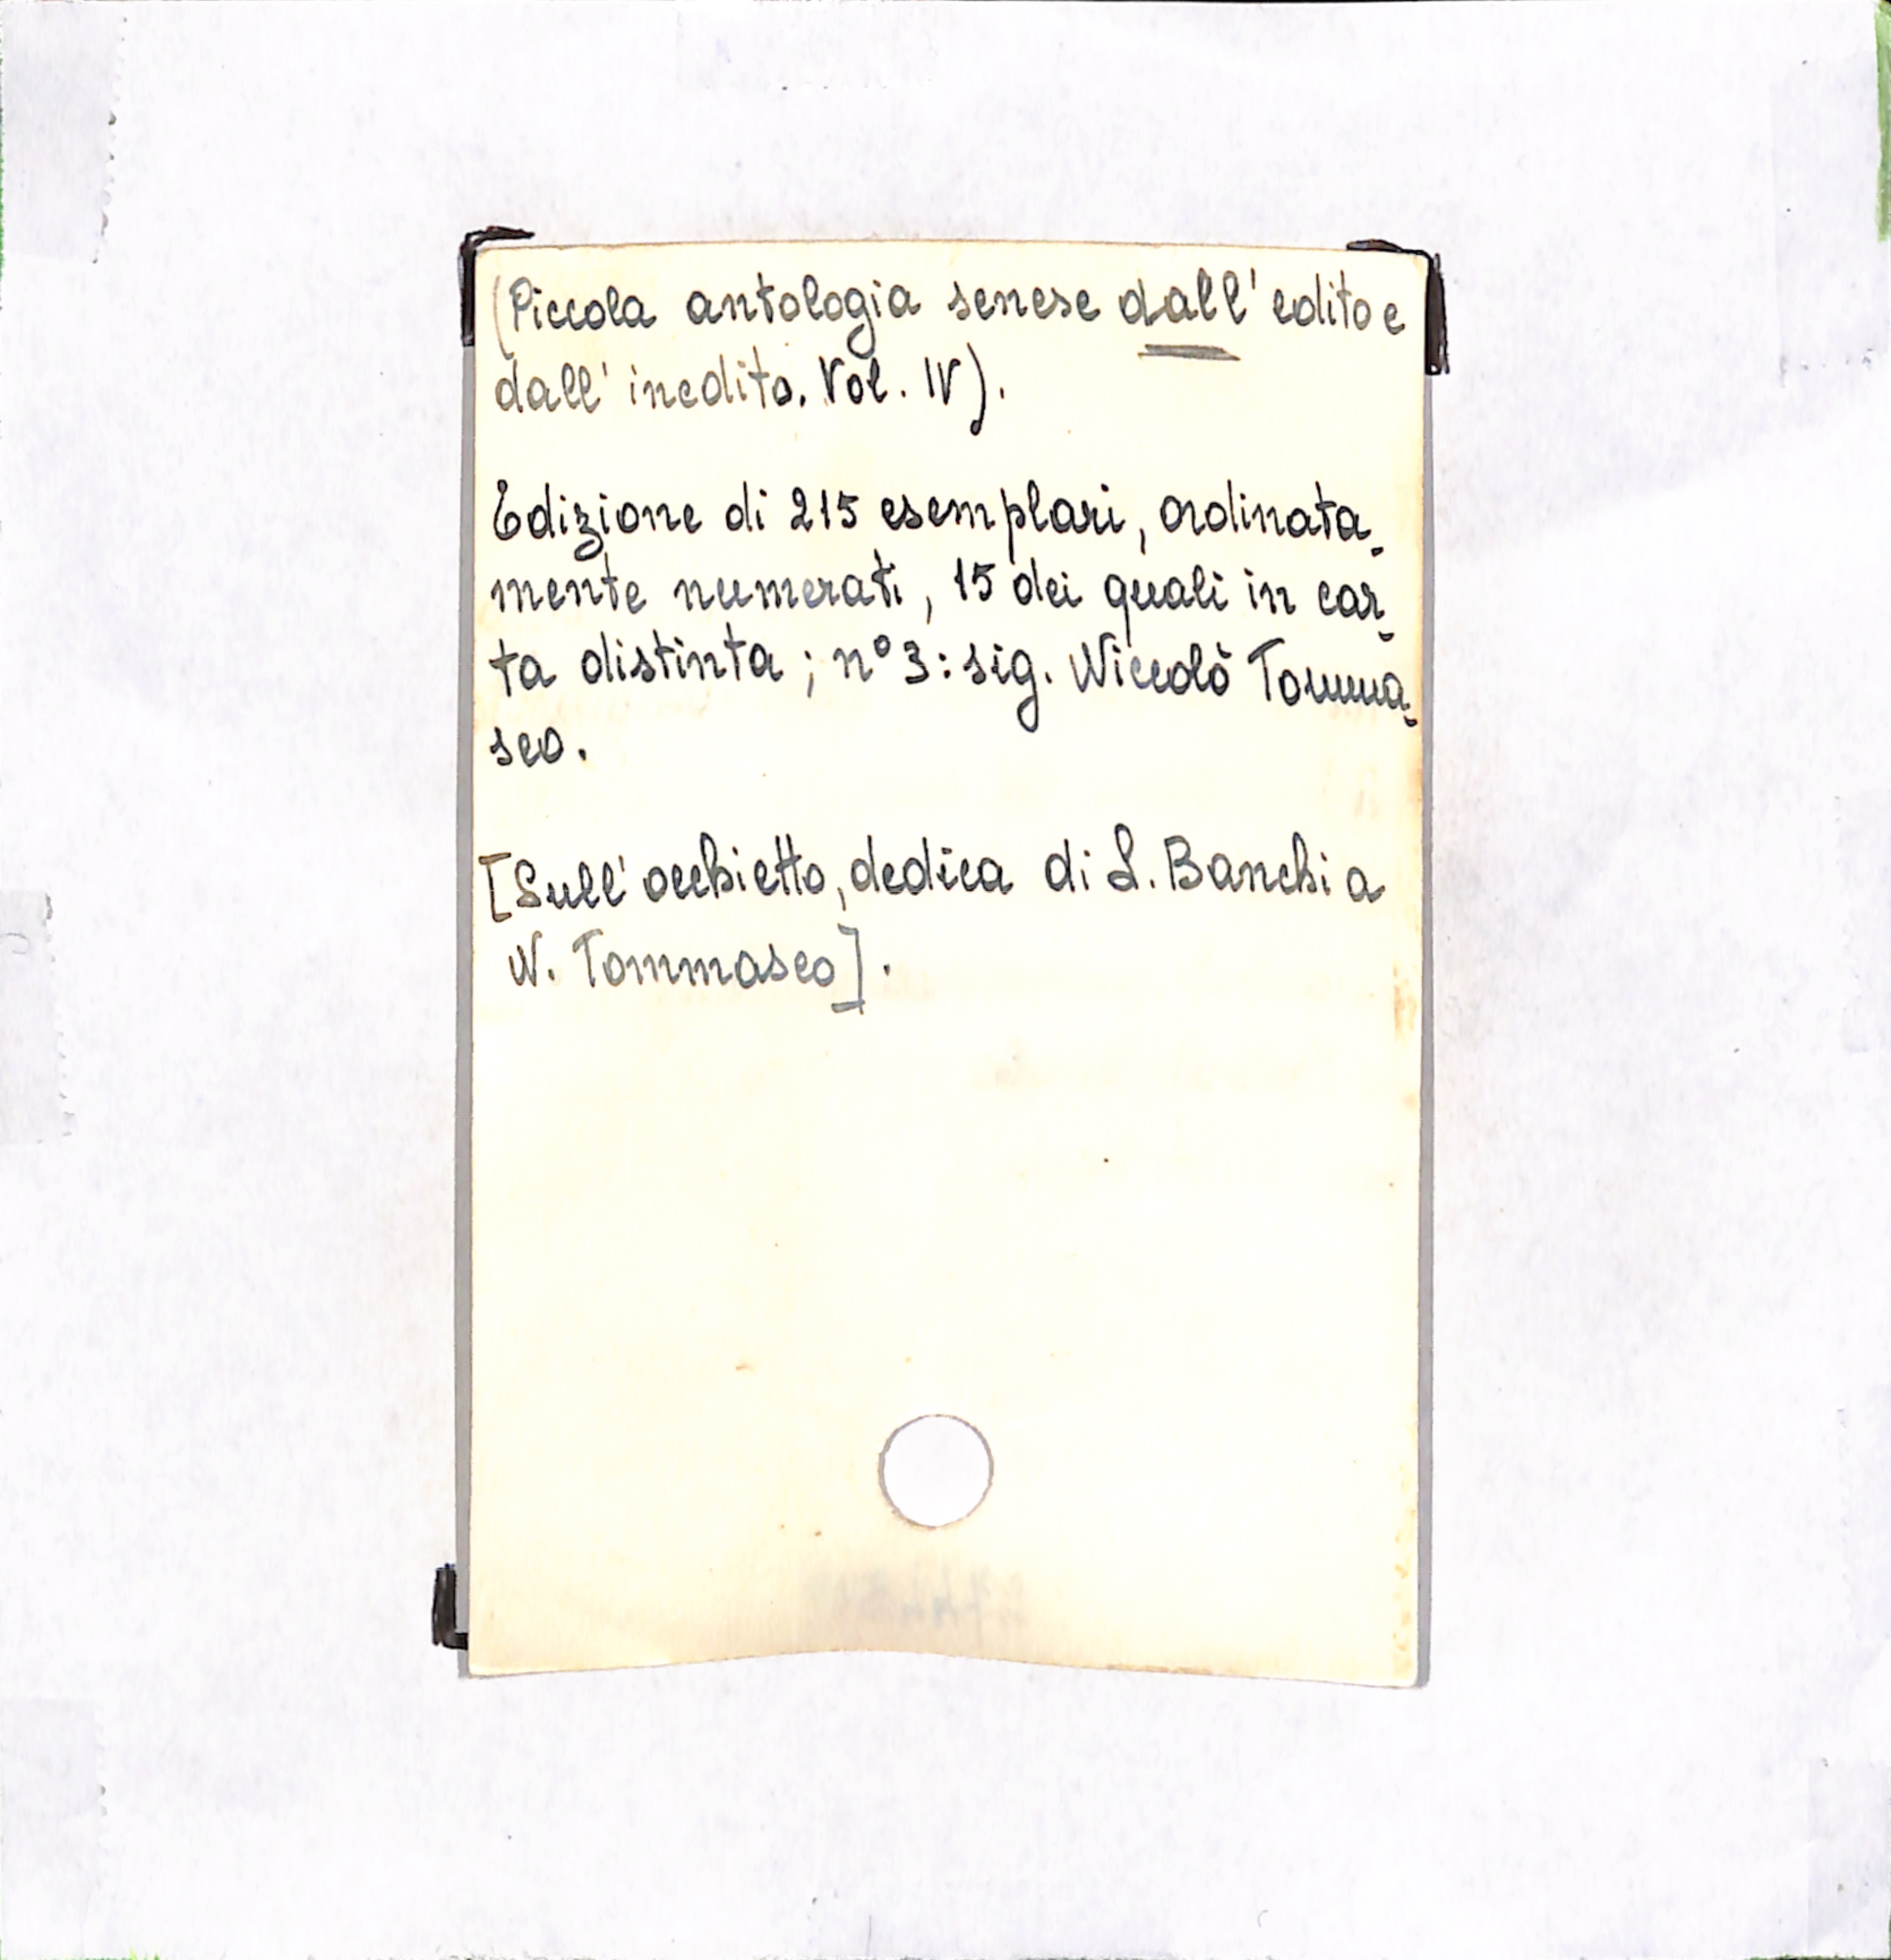 (Piccola antologia senese dall'edito e
dall'inedito. Vol. IV).
Edizione di 215 esemplari, ordinata-
mente numerati, 15 dei quali in car-
ta distinta; n° 3: sig. Niccolò Tomma-
seo.
[Sull'occhietto, dedica di L. Banchi a
N. Tommaseo].